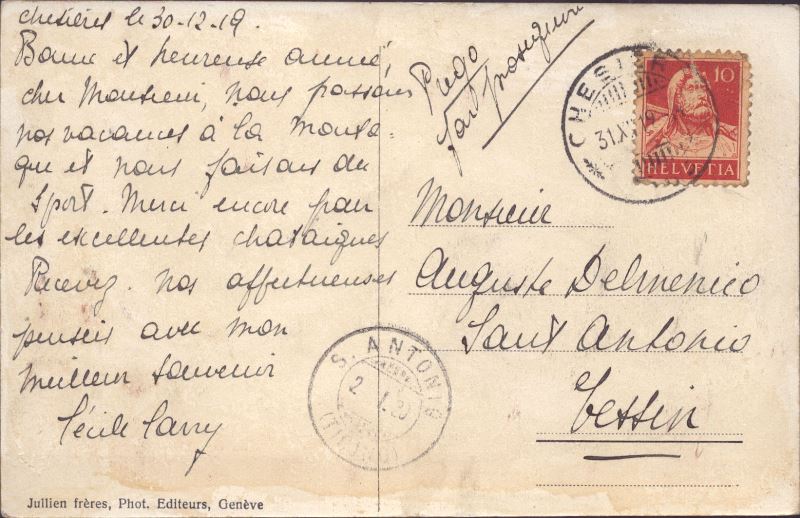 Chesières le 30-12-19.
Bonne et heureuse année
cher Monsieur, nous passons
nos vacances à la monta-
gne et nous faisons du
sport. Merci encore pour
les excellentes chataignes
Recevez nos affectueuses
pensées avec mon
meilleur souvenir
Cécile
Jullien frères, Phot. Editeurs, Genève
Prego
far proseguire
CHESIÈRES
31.XII.19
10
HELVETIA
Monsieur
Auguste Delmenico
Sant Antonio
Tessin
S. ANTONIO
2.I.20
(TICINO)